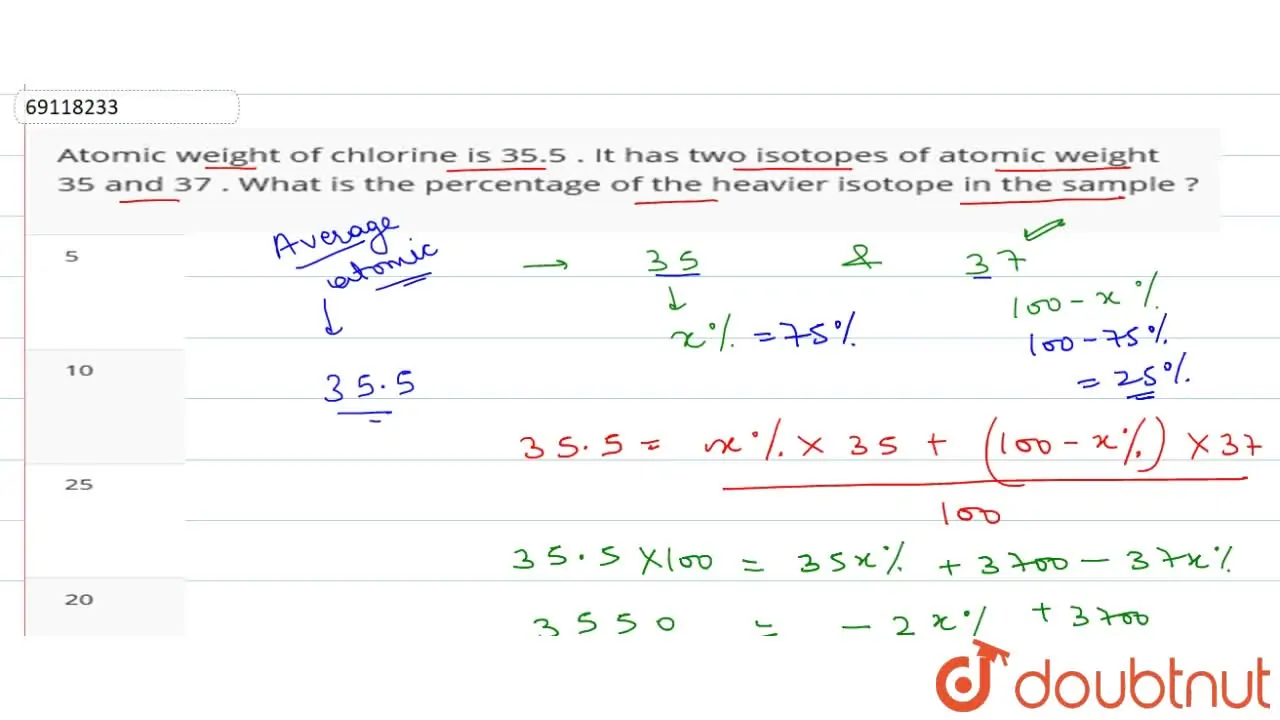 69118233
Atomic weight of chlorine is 35.5 . It has two isotopes of atomic weight
35 and 37 . What is the percentage of the heavier isotope in the sample ?
5
10
25
20
Average
atomic
↓
35.5
→ 35 & 37
↓
x% = 75%
100 - x%
100 - 75%
= 25%
35.5 = x% × 35 + (100 - x%) × 37
100
35.5 × 100 = 35x% + 3700 - 37x%
3550 = - 2x% + 3700
doubtnut